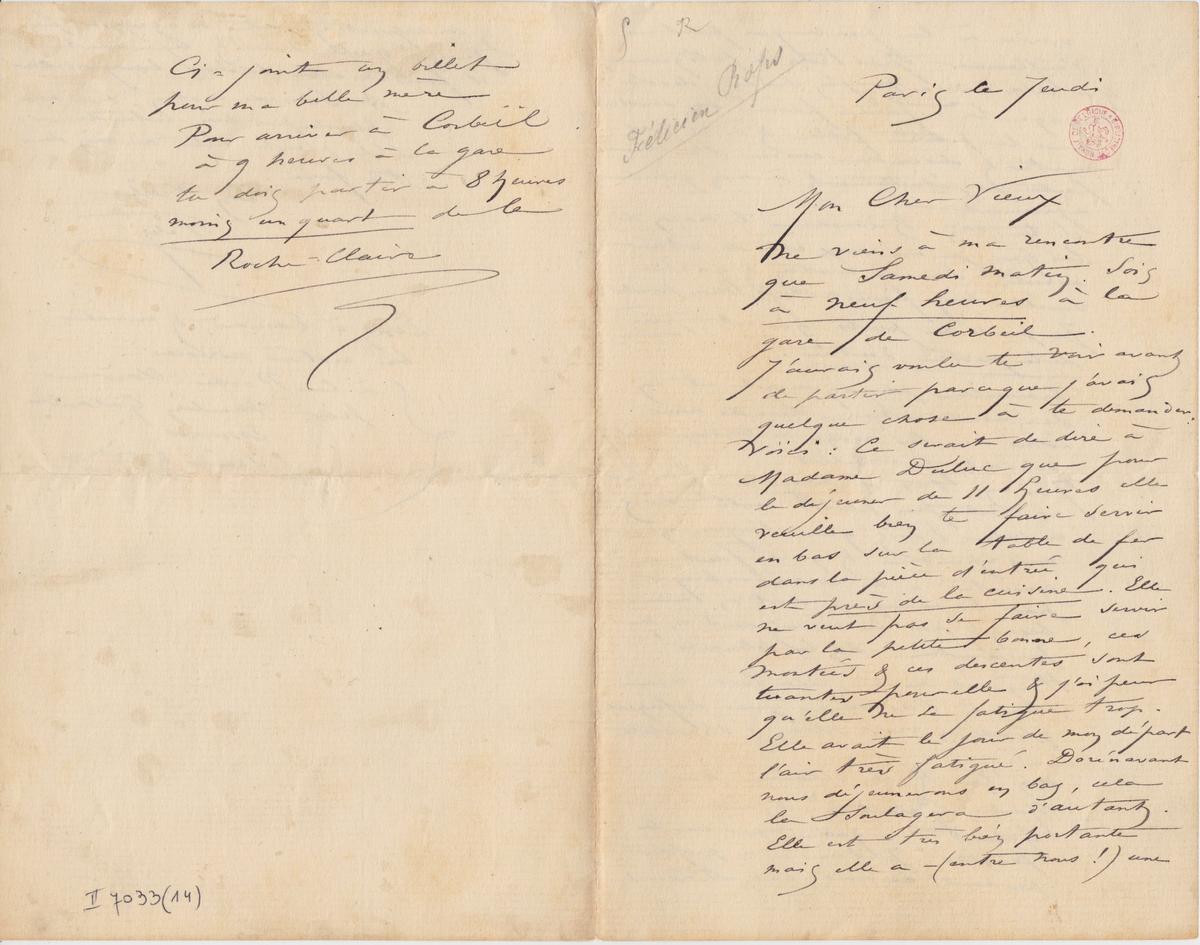 Paris le Jeudi
Mon Cher Vieux
Ne viens à ma rencontre
que Samedi matin. Sois
à neuf heures à la
gare de Corbeil.
J'aurais voulu te voir avant
de partir parceque j'avais
quelque chose à te demander.
Voici : Ce serait de dire à
Madame Duluc que pour
le déjeuner de 11 heures elle
veuille bien te faire servir
en bas sur la table de fer
dans la pièce d'entrée qui
est près de la cuisine. Elle
ne veut pas se faire servir
par la petite bonne, ces
montées & ces descentes sont
tuantes pour elle & j'ai peur
qu'elle ne se fatigue trop.
Elle avait le jour de mon départ
l'air très fatigué. Dorénavant
nous déjeunerons en bas, cela
la soulagera d'autant.
Elle est très bien portante
mais elle a – (entre nous !) une
Ci-joint un billet
pour ma belle mère
Pour arriver à Corbeil
à 9 heures à la gare
tu dois partir à 8 heures
moins un quart de la
Roche-Claire
Félicien Rops
R
II 7033(14)